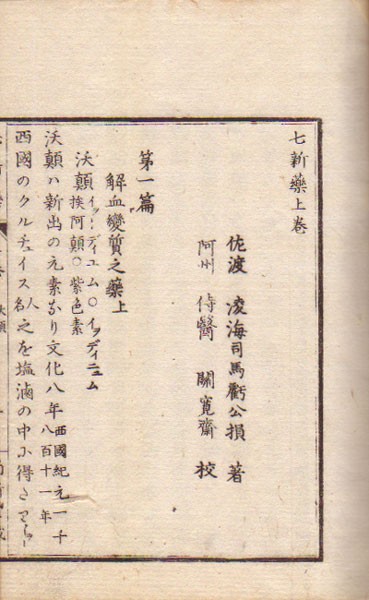 七新藥上卷
佐渡 凌海司馬虧公損 著
阿州 侍醫 關寬齋 校
第一篇
解血變質之藥上
沃顛 イヲーディユム○イヲディニュム
挨阿顛○紫色素
沃顛ハ新出の元素なり文化八年 西國紀元一千八百十一年
西國のクルチュイス人名之を塩滷の中に得さり